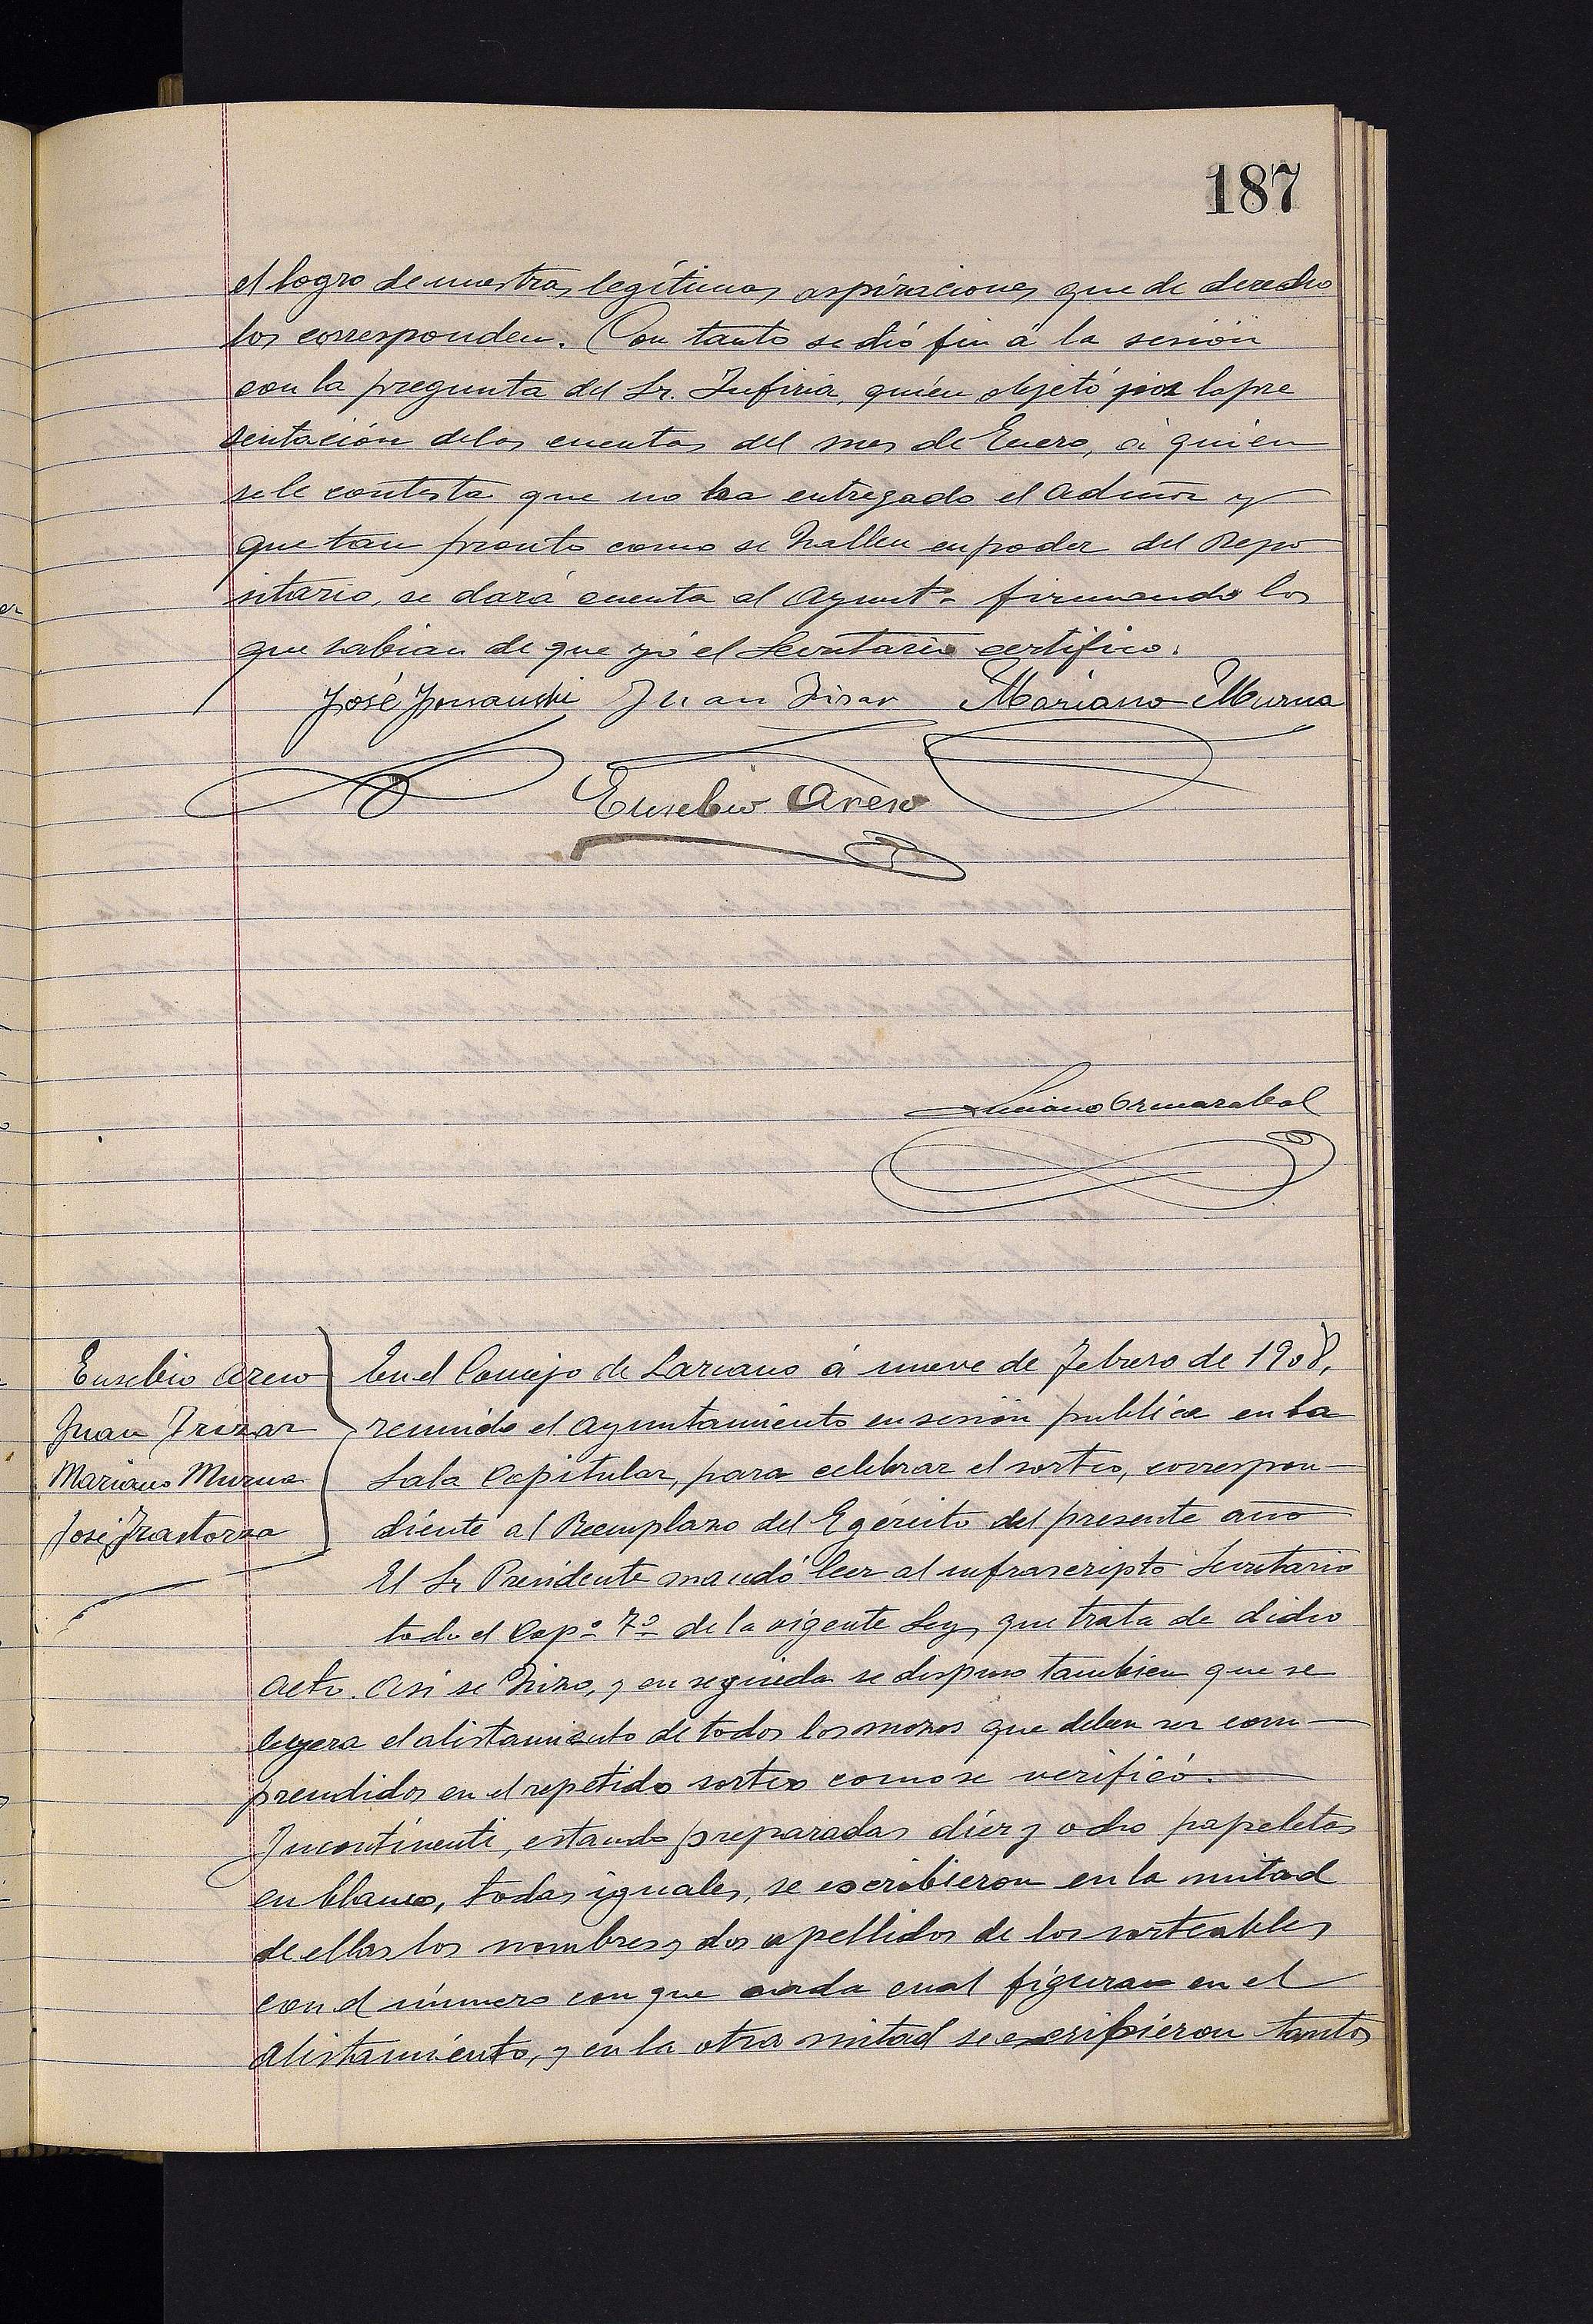 187
el logro de nuestras legítimas aspiraciones que de derecho
los corresponden. Con tanto se dió fin á la sesión
con la pregunta del Sr. quién objetó por la pre
sentación de las cuentas del mes de Enero, á quien
se le contesta que no ha entregado el Admor y
que tan pronto como se hallen en poder del Depo
sitario, se dará cuenta al Ayunt.º firmando los
que sabian de que yó el Secretario certifico.
José Juan Mariano Murua
Eusebio Areso
Luciano Ormazabal
Eusebio Areso
Juan Irizar
Mariano Murua
José Irastorza
En el Concejo de Lazcano á nueve de Febrero de 1908,
reunido el Ayuntamiento en sesión publica en la
Sala Capitular, para celebrar el sorteo, correspon-
diente al Reemplazo del Egército del presente año
El Sr Presidente mandó leer al infrascripto Secretario
todo el Capº 7º de la vigente Ley, que trata de dicho
acto. Asi se hizo, y en seguida se dispuso tambien que se
leyera el alistamiento de todos los mozos que deben ser com-
prendidos en el repetido sorteo como se verificó.
Incontinenti, estando preparadas diez y ocho papeletas
en blanco, todas iguales, se escribieron en la mitad
de ellas los nombres y dos apellidos de los sorteables
con el número con que cada cual figura en el
alistamiento, y en la otra mitad se escribieron tantos